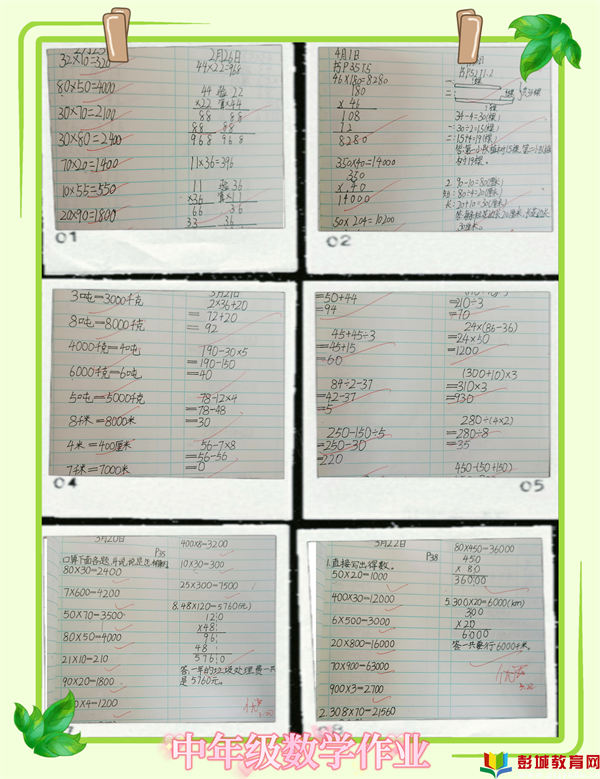 32×10=320
80×50=4000
30×70=2100
30×80=2400
70×20=1400
10×55=550
20×90=1800
2月26日
44×22=968
44 验 22
×22 算×44
88 88
88 88
968 968
11×36=396
11 验36
×36 算×11
66 36
33 36
01
4月1日
书P35T5
46×180=8280
180
× 46
108
72
8280
350×40=14000
350
× 40
14000
50×204=10200
34-4=30(棵)
30÷2=15(棵)
15+4=19(棵)
2. 90-10=80(厘米)
短: 80÷4=20(厘米)
长: 20+10=30(厘米)
30厘米。
02
3吨=3000千克
8吨=8000千克
4000千克=4吨
6000千克=6吨
5吨=5000千克
8千米=8000米
4米=400厘米
7千米=7000米
3月21日
2×36+20
=72+20
=92
190-30×5
=190-150
=40
78-12×4
=78-48
=30
56-7×8
=56-56
=0
04
=50+44
=94
45+45÷3
=45+15
=60
84÷2-37
=42-37
=5
250-150÷5
=250-30
=220
=210÷3
=70
24×(86-36)
=24×50
=1200
(300+10)×3
=310×3
=930
280÷(4×2)
=280÷8
=35
450-(50+150)
05
3月20日
P38
口算下面各题,并说说是怎样算的
80×30=2400
7×600=4200
50×70=3500
80×50=4000
21×10=210
90×20=1800
0×4=1200
400×8=3200
10×30=300
25×300=7500
8.48×120=5760(元)
120
×48
96
48
5760
答:一年的垃圾处理费一共
是5760元。
优
3月22日
P38
1.直接写出得数。
50×20=1000
400×30=12000
6×500=3000
20×800=16000
70×900=63000
900×3=2700
2.308×70=21560
80×450=36000
450
× 80
36000
5.300×20=6000(km)
300
× 20
6000
答:一共要行6000千米。
优
3.22
中年级数学作业
彭城教育网